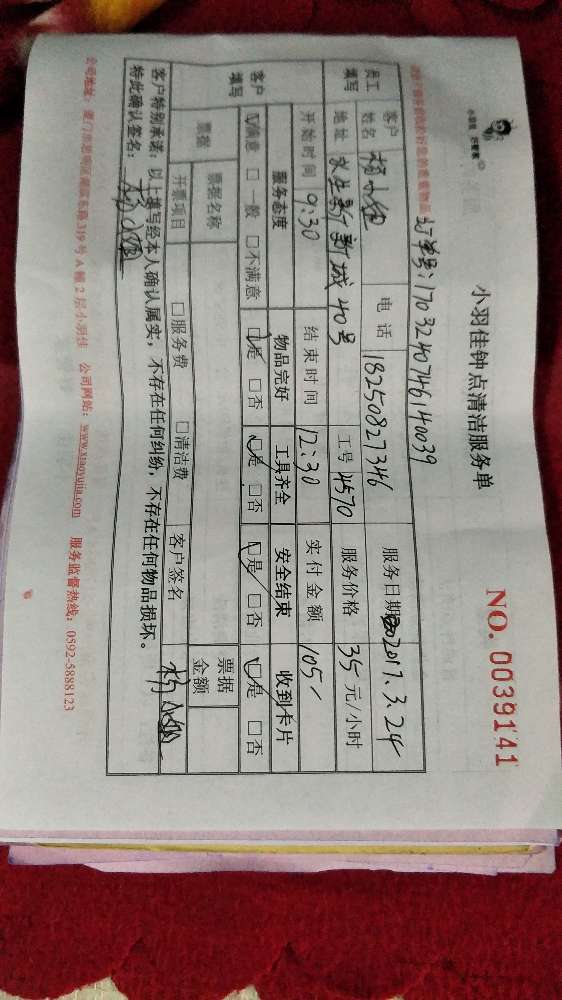 小羽佳钟点清洁服务单
小羽佳 好管家
NO. 0039141
订单号:1703240746140039
员工填写
客户姓名 杨小姐 电话 18250827346 服务日期 2017.3.24
地址 水生新新城40号 工号 4570 服务价格 35元/小时
开始时间 9:30 结束时间 12:30 实付金额 105
客户填写
服务态度 物品完好 工具齐全 安全结束 收到卡片
☑满意 □一般 □不满意 ☑是 □否 ☑是 □否 ☑是 □否 ☑是 □否
票据 票据名称 票据金额
开票项目 □服务费 □清洁费 客户签名 杨小姐
客户特别承诺:以上填写经本人确认属实,不存在任何纠纷,不存在任何物品损坏。
特此确认签名:杨小姐
公司地址:厦门市思明区湖滨东路319号A幢2层小羽佳 公司网站:www.xiaoyujia.com 服务监督热线:0592-5888123